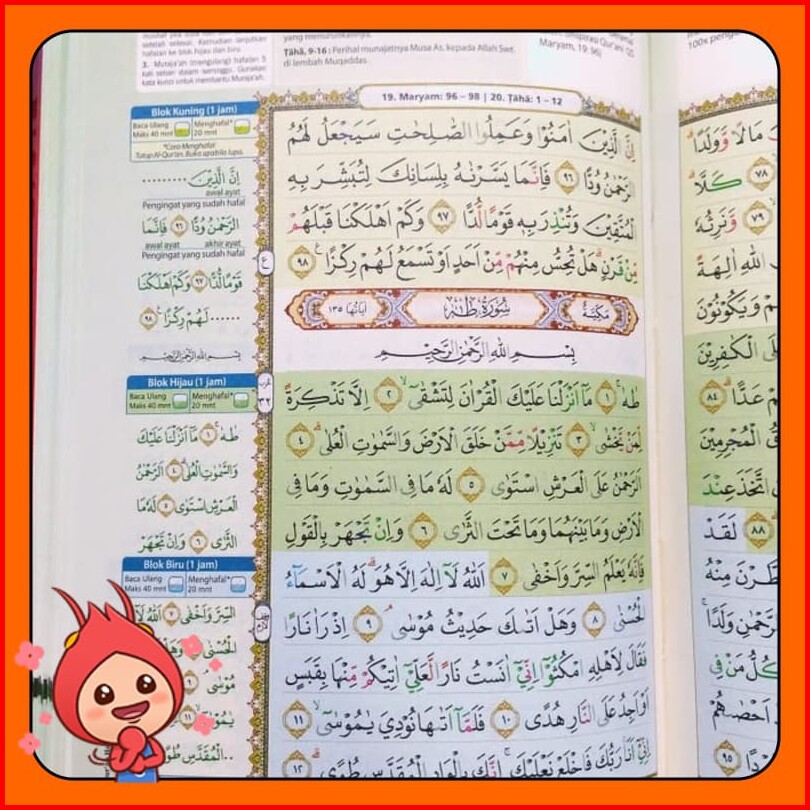 setelah selesai. Kemudian lanjutkan
hafalan ke blok hijau dan biru.
3. Muraja'ah (mengulang) hafalan 5
kali sehari dalam seminggu. Gunakan
kata kunci untuk membantu Muraja'ah.
yang menurunkannya.
Ṭāhā, 9-16: Perihal munajatnya Musa As. kepada Allah Swt.
di lembah Muqaddas.
Maryam, 19: 96)
19. Maryam: 96 – 98 | 20. Ṭāhā: 1 – 12
اِنَّ الَّذِيْنَ اٰمَنُوْا وَعَمِلُوا الصّٰلِحٰتِ سَيَجْعَلُ لَهُمُ
الرَّحْمٰنُ وُدًّا ٩٦ فَاِنَّمَا يَسَّرْنٰهُ بِلِسَانِكَ لِتُبَشِّرَ بِهِ
الْمُتَّقِيْنَ وَتُنْذِرَ بِهٖ قَوْمًا لُّدًّا ٩٧ وَكَمْ اَهْلَكْنَا قَبْلَهُمْ
مِّنْ قَرْنٍۗ هَلْ تُحِسُّ مِنْهُمْ مِّنْ اَحَدٍ اَوْ تَسْمَعُ لَهُمْ رِكْزًا ࣖ ٩٨
مَكِّيَّةٌ سُوْرَةُ طٰهٰ اٰيَاتُهَا ١٣٥
بِسْمِ اللّٰهِ الرَّحْمٰنِ الرَّحِيْمِ
طٰهٰ ۚ ١ مَآ اَنْزَلْنَا عَلَيْكَ الْقُرْاٰنَ لِتَشْقٰٓى ۙ ٢ اِلَّا تَذْكِرَةً
لِّمَنْ يَّخْشٰى ۙ ٣ تَنْزِيْلًا مِّمَّنْ خَلَقَ الْاَرْضَ وَالسَّمٰوٰتِ الْعُلٰى ۗ ٤
الرَّحْمٰنُ عَلَى الْعَرْشِ اسْتَوٰى ٥ لَهٗ مَا فِى السَّمٰوٰتِ وَمَا فِى
الْاَرْضِ وَمَا بَيْنَهُمَا وَمَا تَحْتَ الثَّرٰى ٦ وَاِنْ تَجْهَرْ بِالْقَوْلِ
فَاِنَّهٗ يَعْلَمُ السِّرَّ وَاَخْفٰى ٧ اَللّٰهُ لَآ اِلٰهَ اِلَّا هُوَ ۗ لَهُ الْاَسْمَاۤءُ
الْحُسْنٰى ٨ وَهَلْ اَتٰىكَ حَدِيْثُ مُوْسٰى ۘ ٩ اِذْ رَاٰ نَارًا
فَقَالَ لِاَهْلِهِ امْكُثُوْٓا اِنِّيْٓ اٰنَسْتُ نَارًا لَّعَلِّيْٓ اٰتِيْكُمْ مِّنْهَا بِقَبَسٍ
اَوْ اَجِدُ عَلَى النَّارِ هُدًى ١٠ فَلَمَّآ اَتٰىهَا نُوْدِيَ يٰمُوْسٰٓى ۙ ١١
اِنِّيْٓ اَنَا۠ رَبُّكَ فَاخْلَعْ نَعْلَيْكَ ۚ اِنَّكَ بِالْوَادِ الْمُقَدَّسِ طُوًى ۗ ١٢
Blok Kuning (1 jam)
Baca Ulang Maks 40 mnt
Menghafal* 20 mnt
*Cara Menghafal:
Tutup Al-Qur'an. Buka apabila lupa.
اِنَّ الَّذِيْنَ .........
awal ayat
Pengingat yang sudah hafal
الرَّحْمٰنُ وُدًّا ٩٦ فَاِنَّمَا
awal ayat akhir ayat
Pengingat yang sudah hafal
قَوْمًا لُّدًّا ٩٧ وَكَمْ اَهْلَكْنَا
...... لَهُمْ رِكْزًا ٩٨
بِسْمِ اللّٰهِ الرَّحْمٰنِ الرَّحِيْمِ
Blok Hijau (1 jam)
Baca Ulang Maks 40 mnt
Menghafal* 20 mnt
طٰهٰ ۚ ١ مَآ اَنْزَلْنَا عَلَيْكَ
وَالسَّمٰوٰتِ الْعُلٰى ٤ الرَّحْمٰنُ
الْعَرْشِ اسْتَوٰى ٥ لَهٗ مَا
الثَّرٰى ٦ وَاِنْ تَجْهَرْ
Blok Biru (1 jam)
Baca Ulang Maks 40 mnt
Menghafal* 20 mnt
السِّرَّ وَاَخْفٰى ٧ اَللّٰهُ لَآ
الْحُسْنٰى ٨ وَهَلْ
مُوْسٰى ٩
يٰمُوْسٰى ١١
الْمُقَدَّسِ طُوًى
مَالًا وَّوَلَدًا
٧٨ كَلَّا
٧٩ وَّنَرِثُهٗ
اللّٰهِ اٰلِهَةً
وَيَكُوْنُوْنَ
الْكٰفِرِيْنَ
عَدًّا ٨٤
الْمُجْرِمِيْنَ
اتَّخَذَ عِنْدَ
٨٨ لَقَدْ
مِنْهُ
وَلَدًا
كُلُّ مَنْ فِى
اَحْصٰىهُمْ
٩٥